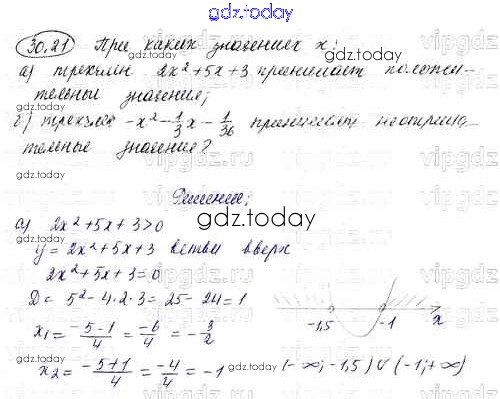 gdz.today
30.21 При каких значениях x:
gdz.today
а) трехчлен 2x²+5x+3 принимает положи-
тельные значения;
б) трехчлен -x²-1/3x-1/36 принимает неотрица-
тельные значение?
Решение:
gdz.today
а) 2x²+5x+3>0
y=2x²+5x+3 ветви вверх
gdz.today
2x²+5x+3=0
D= 5²-4·2·3=25-24=1
x₁= -5-1/4 = -6/4 = -3/2
-1,5 -1 x
x₂= -5+1/4 = -4/4 = -1 (-∞;-1,5)∪(-1;+∞)
gdz.today